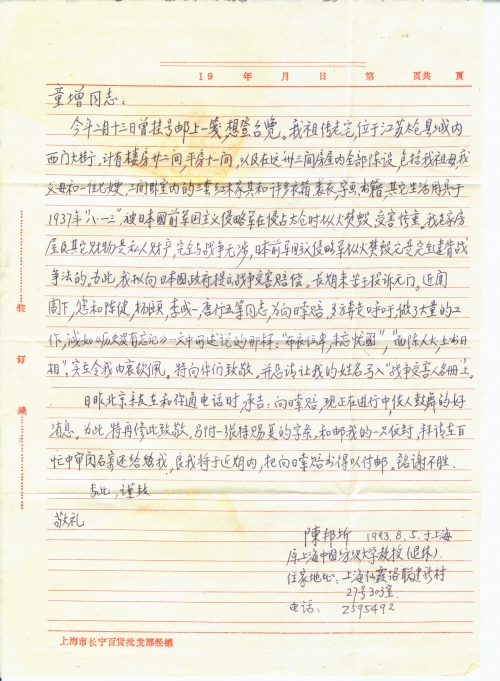 19 年 月 日 第 页共 页
童增同志：
今年二月十三日曾挂号邮上一笺，想登台览。我祖传老宅，位于江苏太仓县城内
西门大街，计有楼房廿二间，平房十一间，以及在这卅三间房屋内全部陈设，包括我祖母我
父母和一位兄嫂，三间卧室内的三套红木家具和许多衣箱裘衣、字画、书籍，其它生活用具于
1937年"八·一三"被日本国前军国主义侵略军在侵占太仓时纵火焚毁，受害惨重。我老宅房
屋及其它财物是私人财产，完全与战争无涉，日本前军国主义侵略军纵火焚毁它是完全违背战
争法的。为此，我拟向日本国政府提出战争受害赔偿。长期来苦于投诉无门。近闻
阁下，您和陈健，杨颐，李成一，唐行五等同志，为向日索赔，多方奔走呼吁，做了大量的工
作，诚如《历史没有忘记》一文中所述说的那样："布衣位卑，未忘忧国"，"面陈人大，上书日
相"，实在令我由衷钦佩。特向你们致敬。并恳请让我的姓名写入"战争受害人名册"上。
日昨北京亲友在和你通电话时，承告：向日索赔，现正在进行中，使人鼓舞的好
消息。为此，特再修此致敬。另付一张待赐复的字条，和邮我的一只信封，拜请在百
忙中审阅后寄还给我，良我将于近期内，把向日索赔书得以付邮。铭谢不胜。
专此，谨致
敬礼
陳邦圻 1993.8.5.于上海
原上海中国纺织大学教授(退休)。
住家地址：上海仙霞路联建新村
27号303室.
电话： 2595492
装
订
线
上海市长宁百货批发部经销